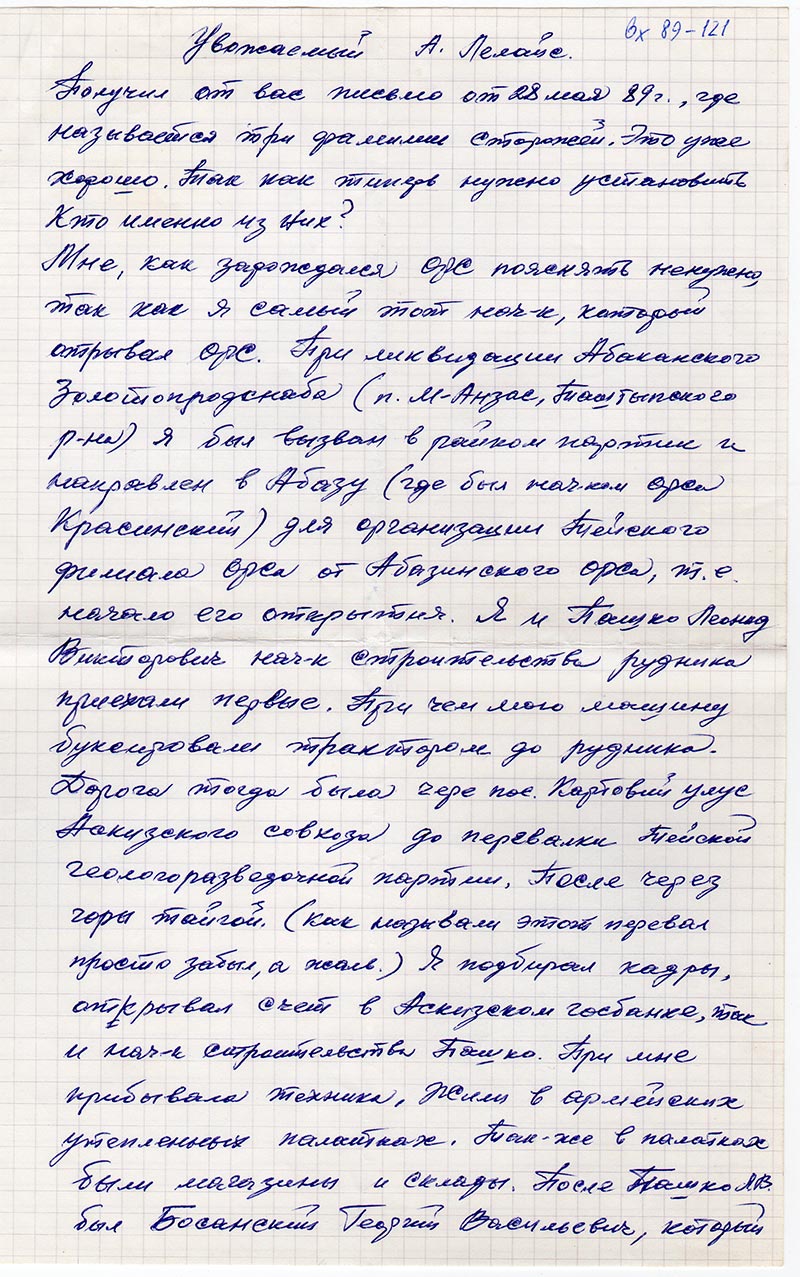 вх 89-121
Уважаемый А. Лелайс.
Получил от вас письмо от 28 мая 89г., где
называется три фамилии сторожей. Это уже
хорошо. Так как типерь нужно установить
Кто именно из них?
Мне, как зарождался ОРС пояснять ненужно,
так как я самый тот нач-к, который
открывал ОРС. При ликвидации Абаканского
Золотопродснаба (п. М-Анзас, Таштыпского
р-на) я был вызван в райком партии и
направлен в Абазу (где был нач-ком орса
Красинский) для организации Тейского
филиала орса от Абазинского орса, т.е.
начало его открытия. Я и Пашко Леонид
Викторович нач-к строительства рудника
приехали первые. При чем мою машину
буксировали трактором до рудника.
Дорога тогда была чере пос. Картовий улус
Аскизского совхоза до перевалки Тейской
геологоразведочной партии. После через
горы тайгой. (как называли этот перевал
просто забыл, а жаль.) Я подбирал кадры,
открывал счет в Аскизском госбанке, так
и нач-к строительства Пашко. При мне
прибывала техника, Жили в армейских
утепленных палатках. Так-же в палатках
были магазины и склады. После Пашко Л.В.
был Босанский Георгий Васильевич, который